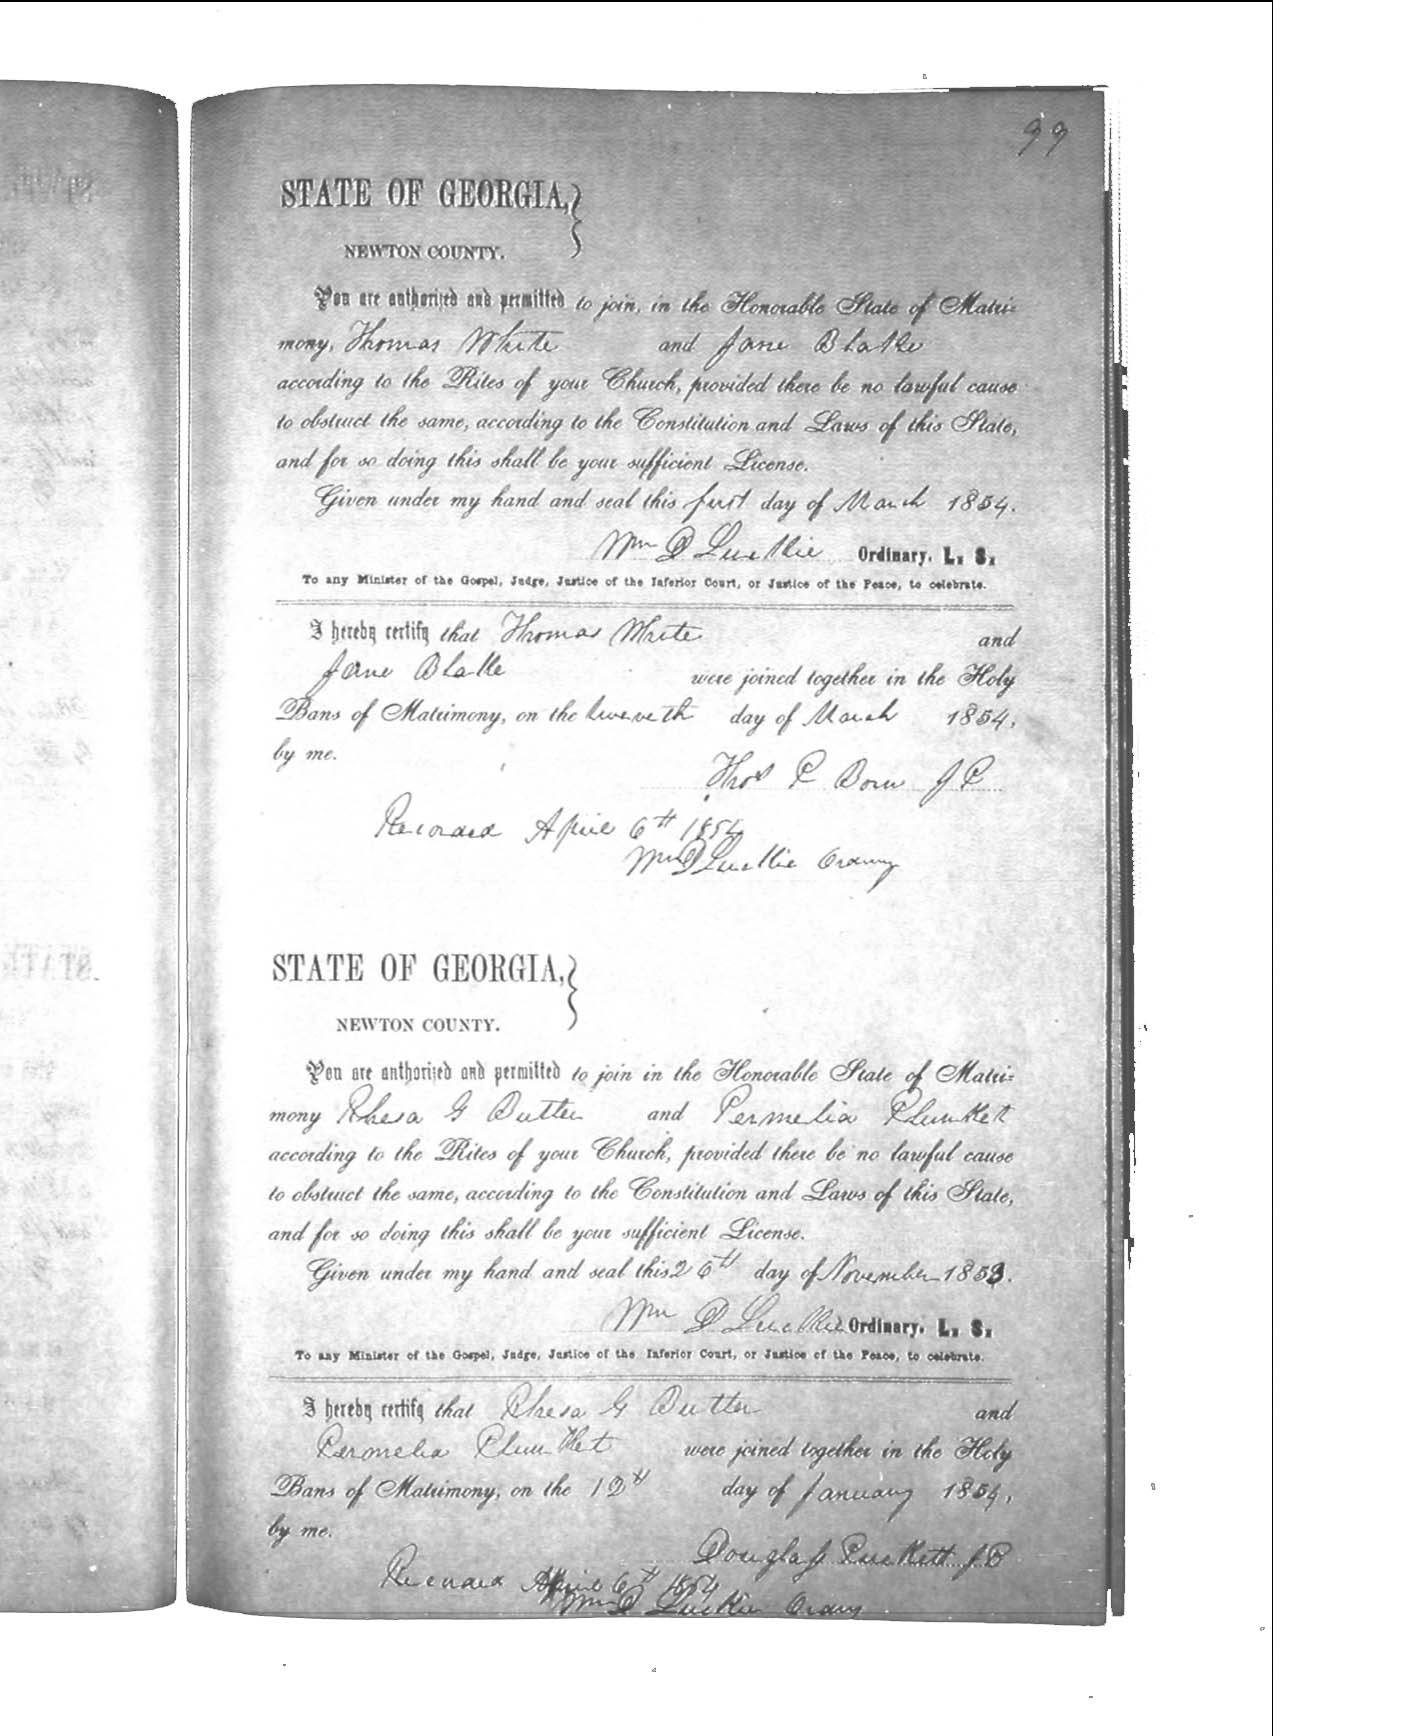 99
STATE OF GEORGIA,
NEWTON COUNTY.
You are authorized and permitted to join, in the Honorable State of Matri=
mony, Thomas White and Jane Blake
according to the Rites of your Church, provided there be no lawful cause
to obstruct the same, according to the Constitution and Laws of this State,
and for so doing this shall be your sufficient License.
Given under my hand and seal this first day of March 1854.
Wm D Luckie Ordinary. L. S.
To any Minister of the Gospel, Judge, Justice of the Inferior Court, or Justice of the Peace, to celebrate.
I hereby certify that Thomas White and
Jane Blake were joined together in the Holy
Bans of Matrimony, on the day of March 1854,
by me.
Thos P Born J P
Recorded April 6th 1854
Wm D Luckie Ordinary
STATE OF GEORGIA,
NEWTON COUNTY.
You are authorized and permitted to join in the Honorable State of Matri=
mony Rhesa G Butler and Permelia Plunket
according to the Rites of your Church, provided there be no lawful cause
to obstruct the same, according to the Constitution and Laws of this State,
and for so doing this shall be your sufficient License.
Given under my hand and seal this 26th day of November 1853.
Wm D Luckie Ordinary. L. S.
To any Minister of the Gospel, Judge, Justice of the Inferior Court, or Justice of the Peace, to celebrate.
I hereby certify that Rhesa G Butler and
Permelia Plunket were joined together in the Holy
Bans of Matrimony, on the 12th day of January 1854,
by me.
Douglass Puckett J P
Recorded April 6th 1854
Wm D Luckie Ordary